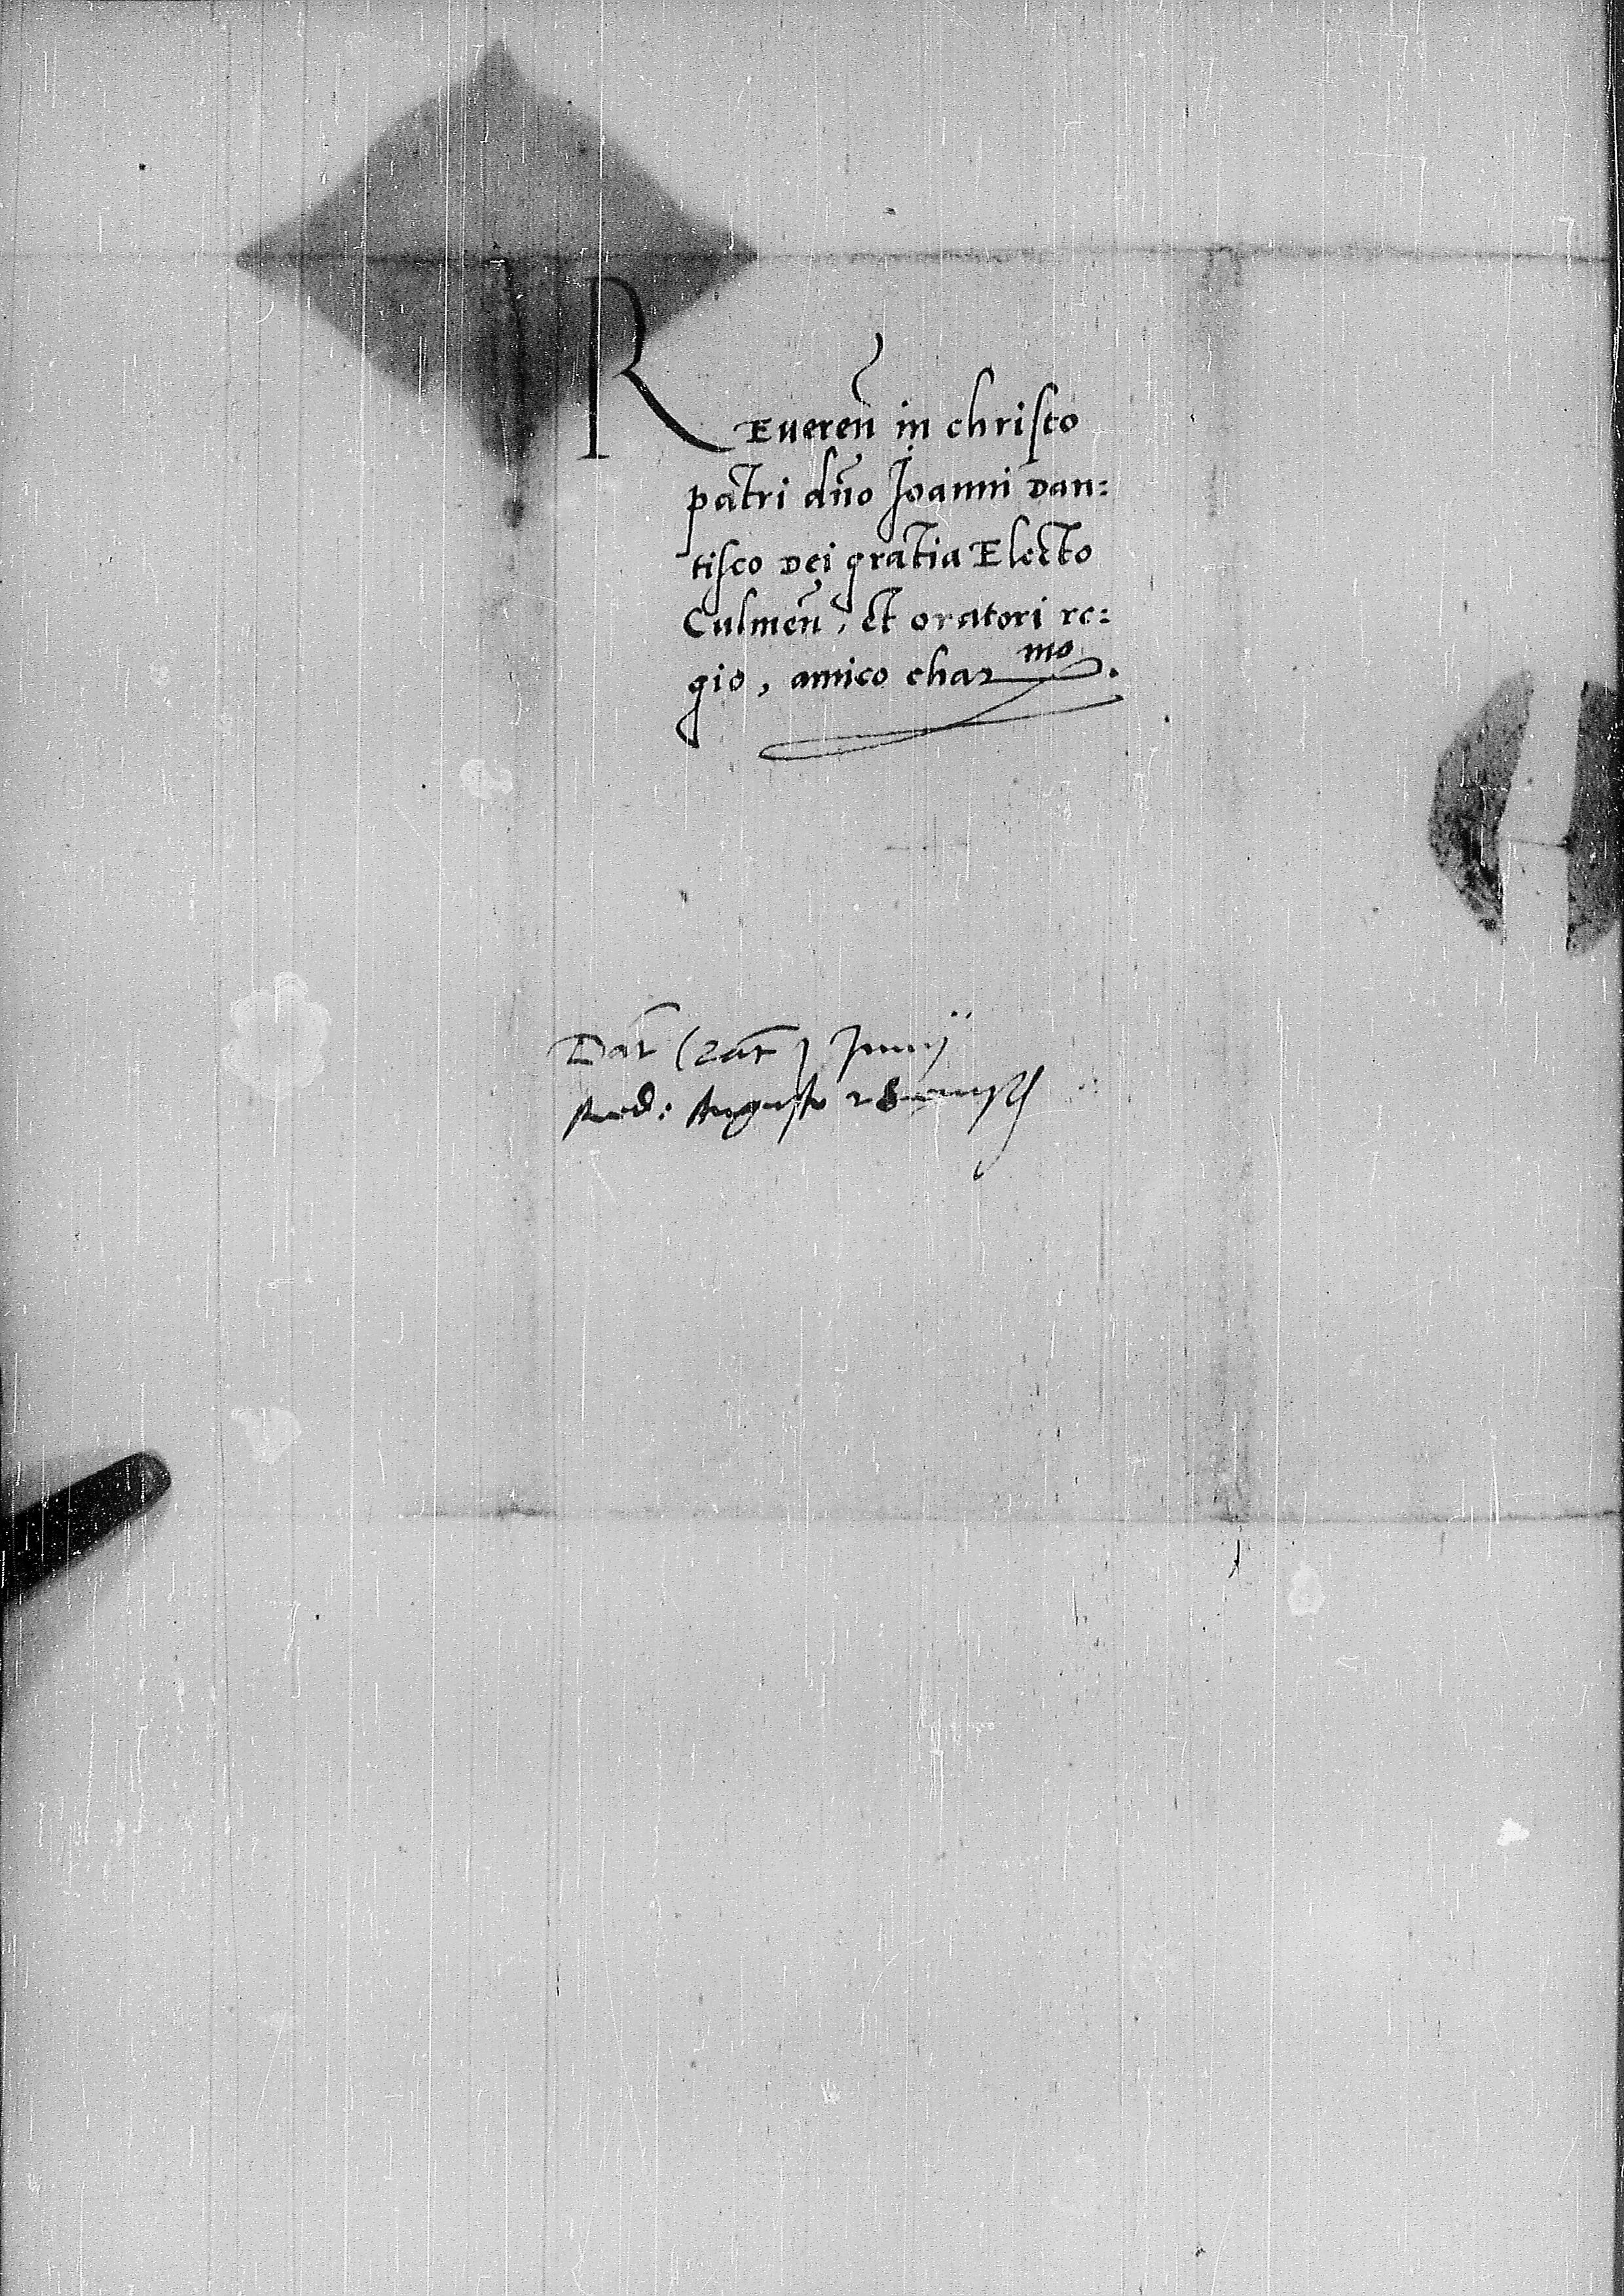 REueren̄ in christo
patri dn̄o Joanni Dan:
tisco Dei gratia Electo
Culmen̄, et oratori re:
gio, amico char^mo.
Dat Junij
Augusti 28